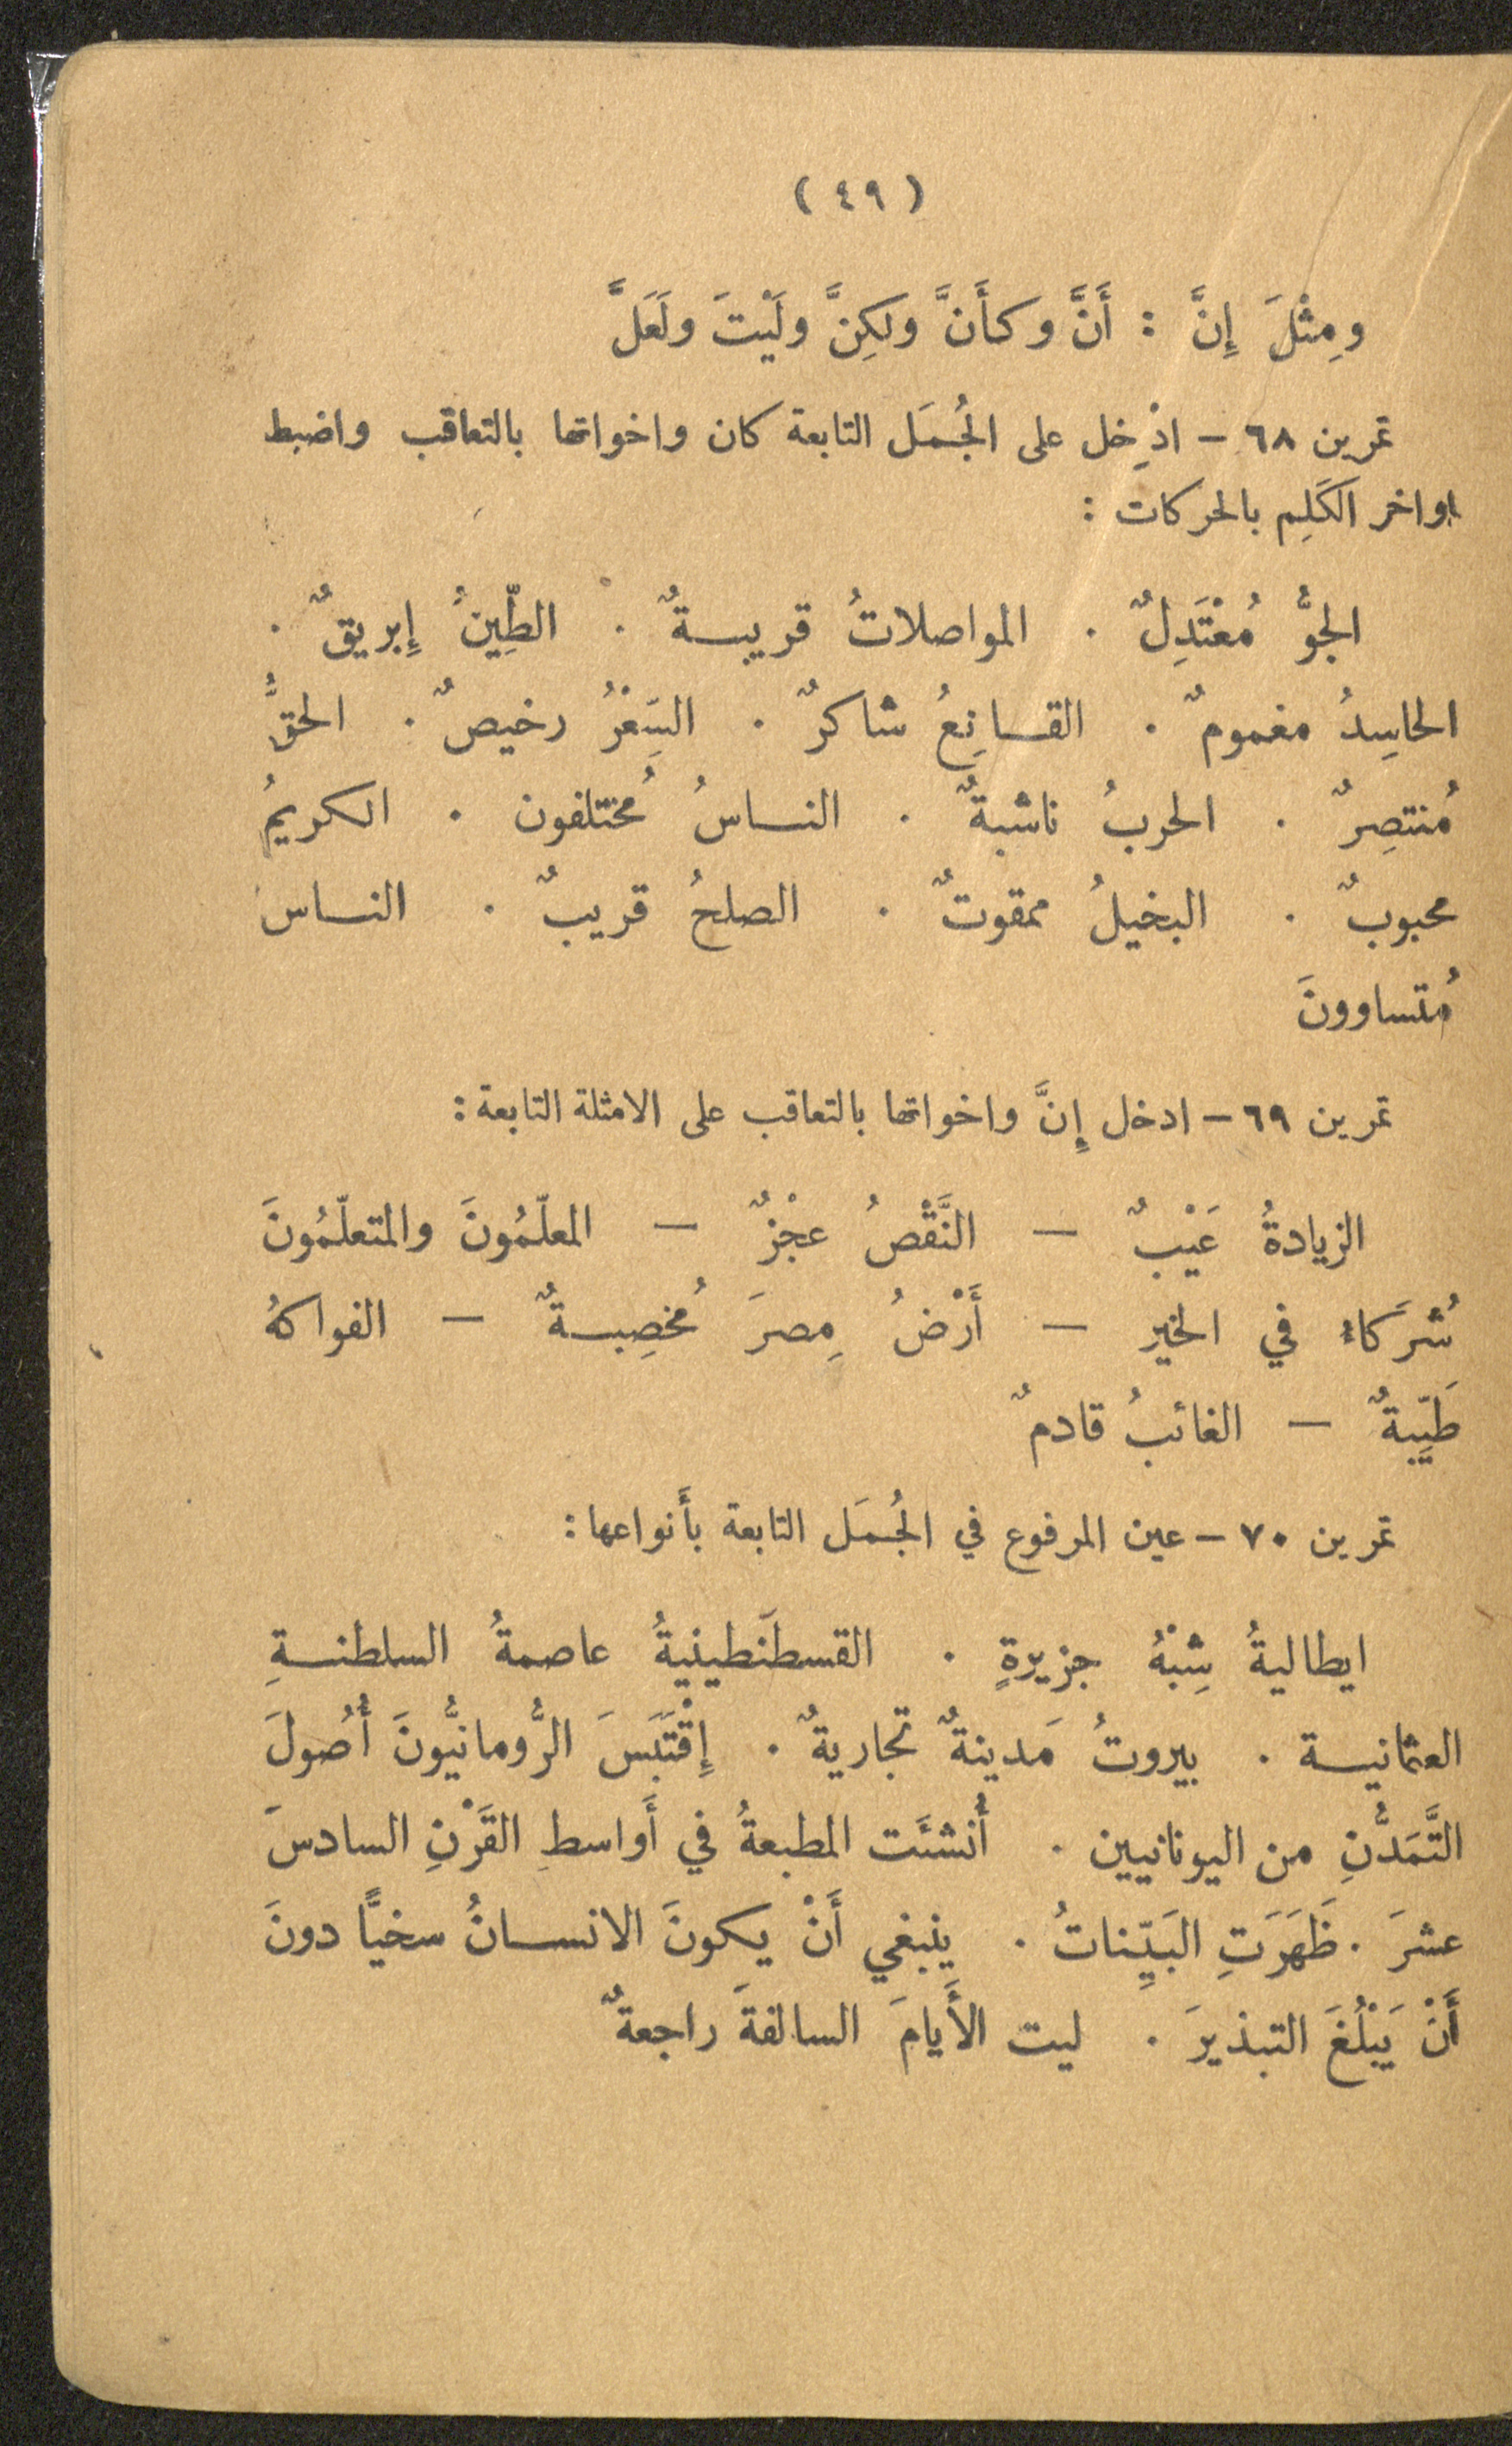 (٤٩)
ومِثْلَ إِنَّ : أَنَّ وكأَنَّ ولكِنَّ ولَيْتَ ولَعَلَّ
تمرين ٦٨ – ادْخِل على الجُمَل التابعة كان واخواتها بالتعاقب واضبط
اواخر الكَلِم بالحركات :
الجوُّ مُعْتَدِلٌ . المواصلاتُ قريبةٌ . الطِّينُ إِبريقٌ .
الحاسِدُ مغمومٌ . القانِعُ شاكرٌ . السِّعْرُ رخيصٌ . الحقُّ
مُنتصِرٌ . الحربُ ناشبةٌ . الناسُ مُختلفون . الكريمُ
محبوبٌ . البخيلُ ممقوتٌ . الصلحُ قريبٌ . الناس
مُتساوونَ
تمرين ٦٩ – ادخل إِنَّ واخواتها بالتعاقب على الامثلة التابعة :
الزيادةُ عَيْبٌ – النَّقْصُ عجْزٌ – المعلّمُونَ والمتعلّمُونَ
شُرَكاءُ في الخير – أَرْضُ مِصرَ مُخصِبةٌ – الفواكهُ
طَيِّبةٌ – الغائبُ قادمٌ
تمرين ٧٠ – عين المرفوع في الجُمَل التابعة بأَنواعها :
ايطاليةُ شِبْهُ جزيرةٍ . القسطَنطينيةُ عاصمةُ السلطنةِ
العثمانية . بيروتُ مَدينةٌ تجاريةٌ . إِقْتَبَسَ الرُّومانيُّونَ أُصُولَ
التَّمَدُّنِ من اليونانيين . أُنشئَت المطبعةُ في أَواسطِ القَرْنِ السادسَ
عشرَ . ظَهَرَتِ البَيِّناتُ . ينبغي أَنْ يكونَ الانسانُ سخيًّا دونَ
أَنْ يَبْلُغَ التبذيرَ . ليت الأَيامَ السالفةَ راجعةٌ